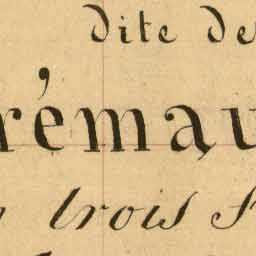 dite de
rémau
trois